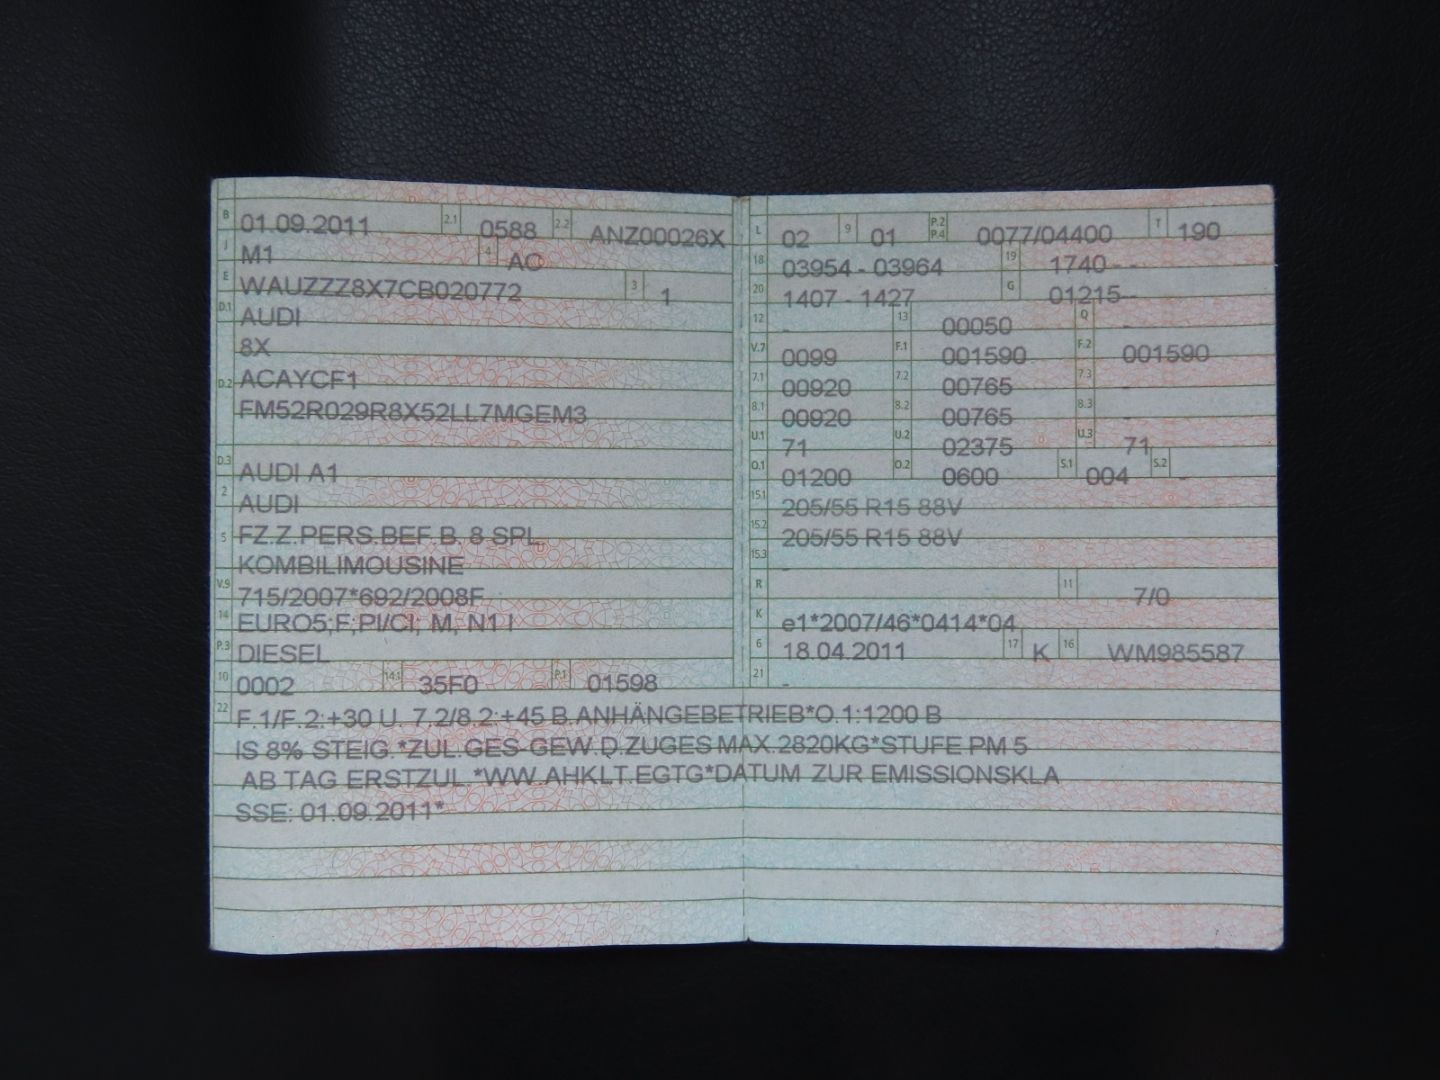 B 01.09.2011 2.1 0588 2.2 ANZ00026X
J M1 4 AC
E WAUZZZ8X7CB020772 3 1
D.1 AUDI
8X
D.2 ACAYCF1
FM52R029R8X52LL7MGEM3
D.3 AUDI A1
2 AUDI
5 FZ.Z.PERS.BEF.B. 8 SPL.
KOMBILIMOUSINE
V.9 715/2007*692/2008F
14 EURO5;F;PI/CI; M, N1 I
P.3 DIESEL
10 0002 14.1 35F0 P.1 01598
L 02 9 01 P.2 P.4 0077/04400 T 190
18 03954 - 03964 19 1740 - -
20 1407 - 1427 G 01215--
12 - 13 00050 Q -
V.7 0099 F.1 001590 F.2 001590
7.1 00920 7.2 00765 7.3 -
8.1 00920 8.2 00765 8.3 -
U.1 71 U.2 02375 U.3 71
O.1 01200 O.2 0600 S.1 004 S.2 -
15.1 205/55 R15 88V
15.2 205/55 R15 88V
15.3 -
R 11 7/0
K e1*2007/46*0414*04
6 18.04.2011 17 K 16 WM985587
21 -
22 F.1/F.2:+30 U. 7.2/8.2:+45 B.ANHÄNGEBETRIEB*O.1:1200 B
IS 8% STEIG.*ZUL.GES-GEW.D.ZUGES MAX.2820KG*STUFE PM 5
AB TAG ERSTZUL.*WW.AHKLT.EGTG*DATUM ZUR EMISSIONSKLA
SSE: 01.09.2011*